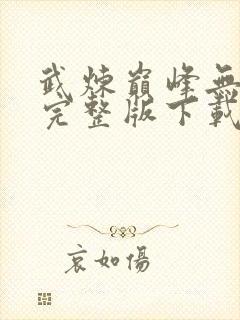 武煉巔峰無
完整版下載
哀如傷